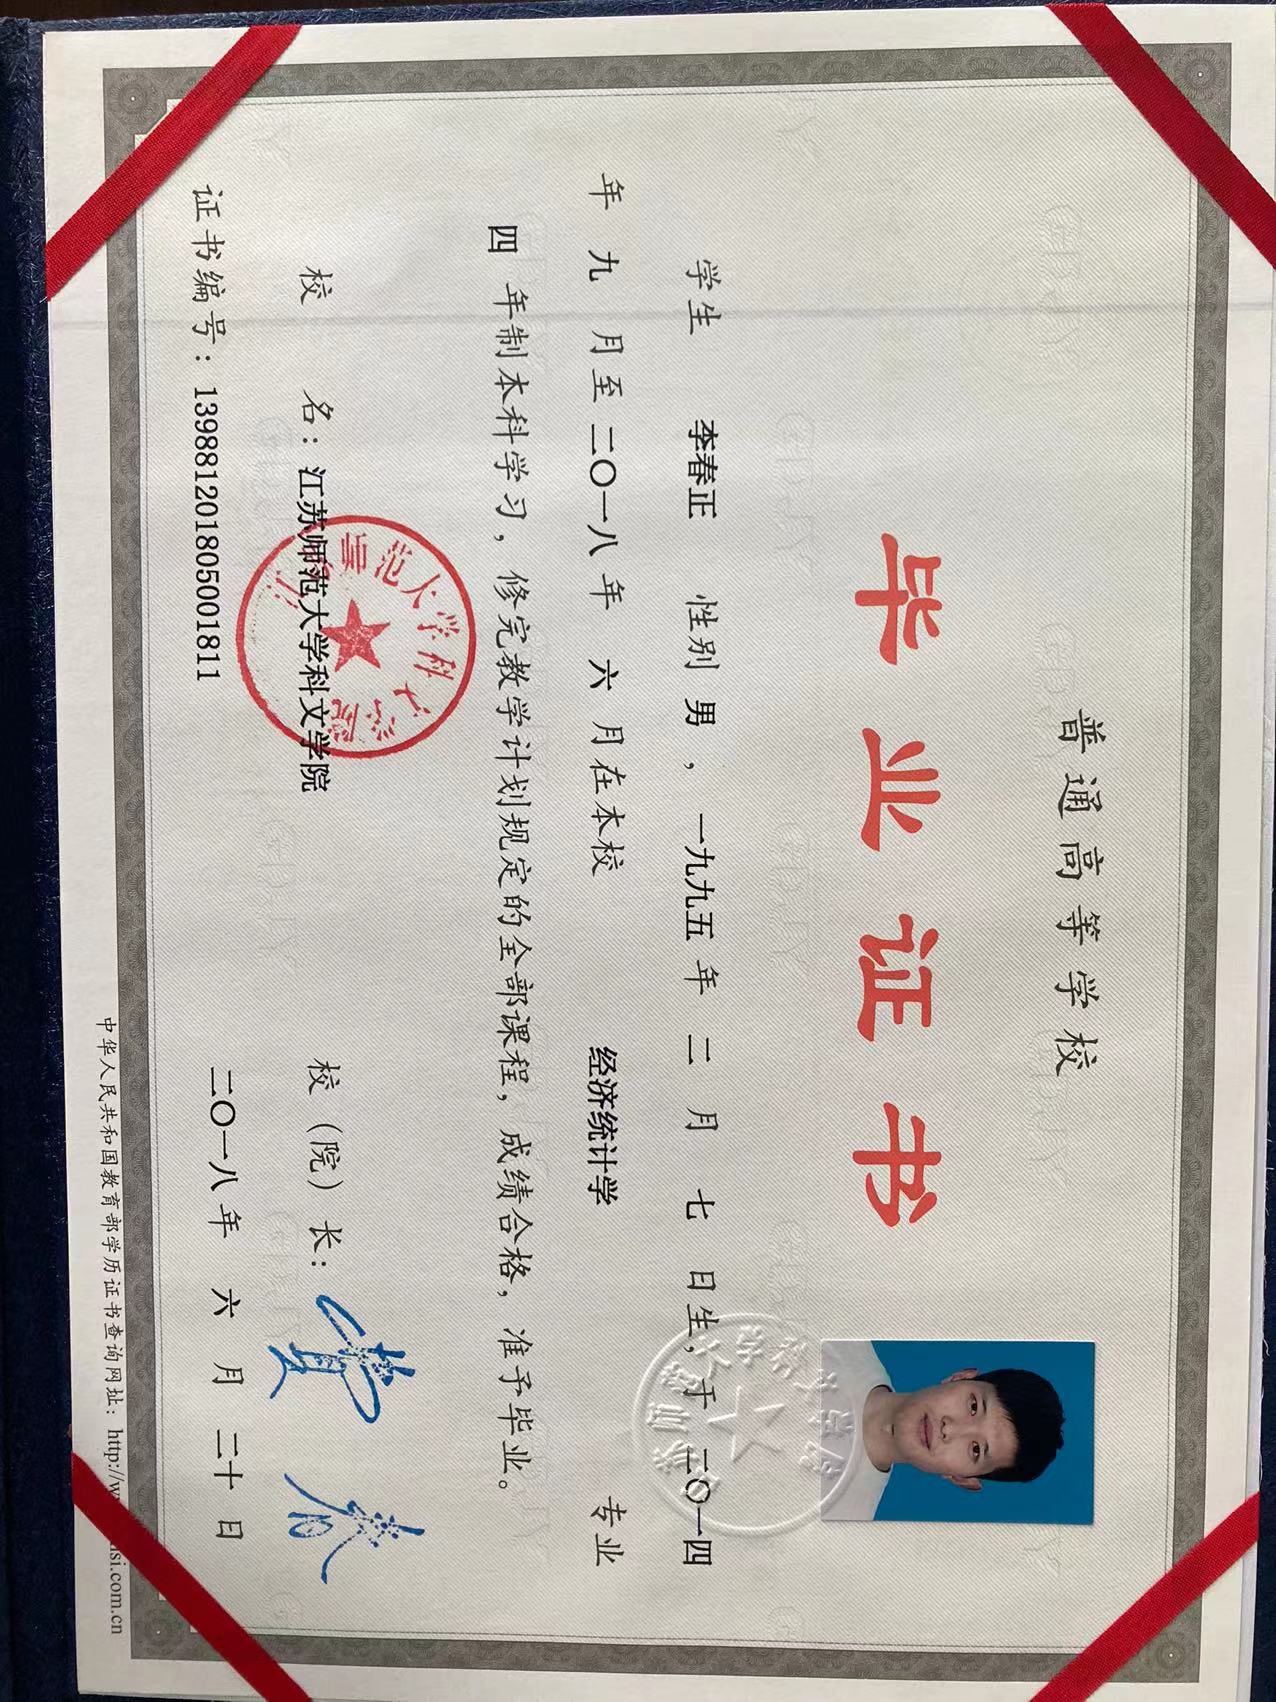 普通高等学校
毕业证书
学生 李春正 性别 男，一九九五年 二 月 七 日生，于 二〇一四
年 九 月至 二〇一八 年 六 月在本校 经济统计学 专业
四 年制本科学习，修完教学计划规定的全部课程，成绩合格，准予毕业。
校 名：江苏师范大学科文学院 校（院）长：
证书编号：139881201805001811 二〇一八年 六 月 二十 日
中华人民共和国教育部学历证书查询网址：http://w
si.com.cn